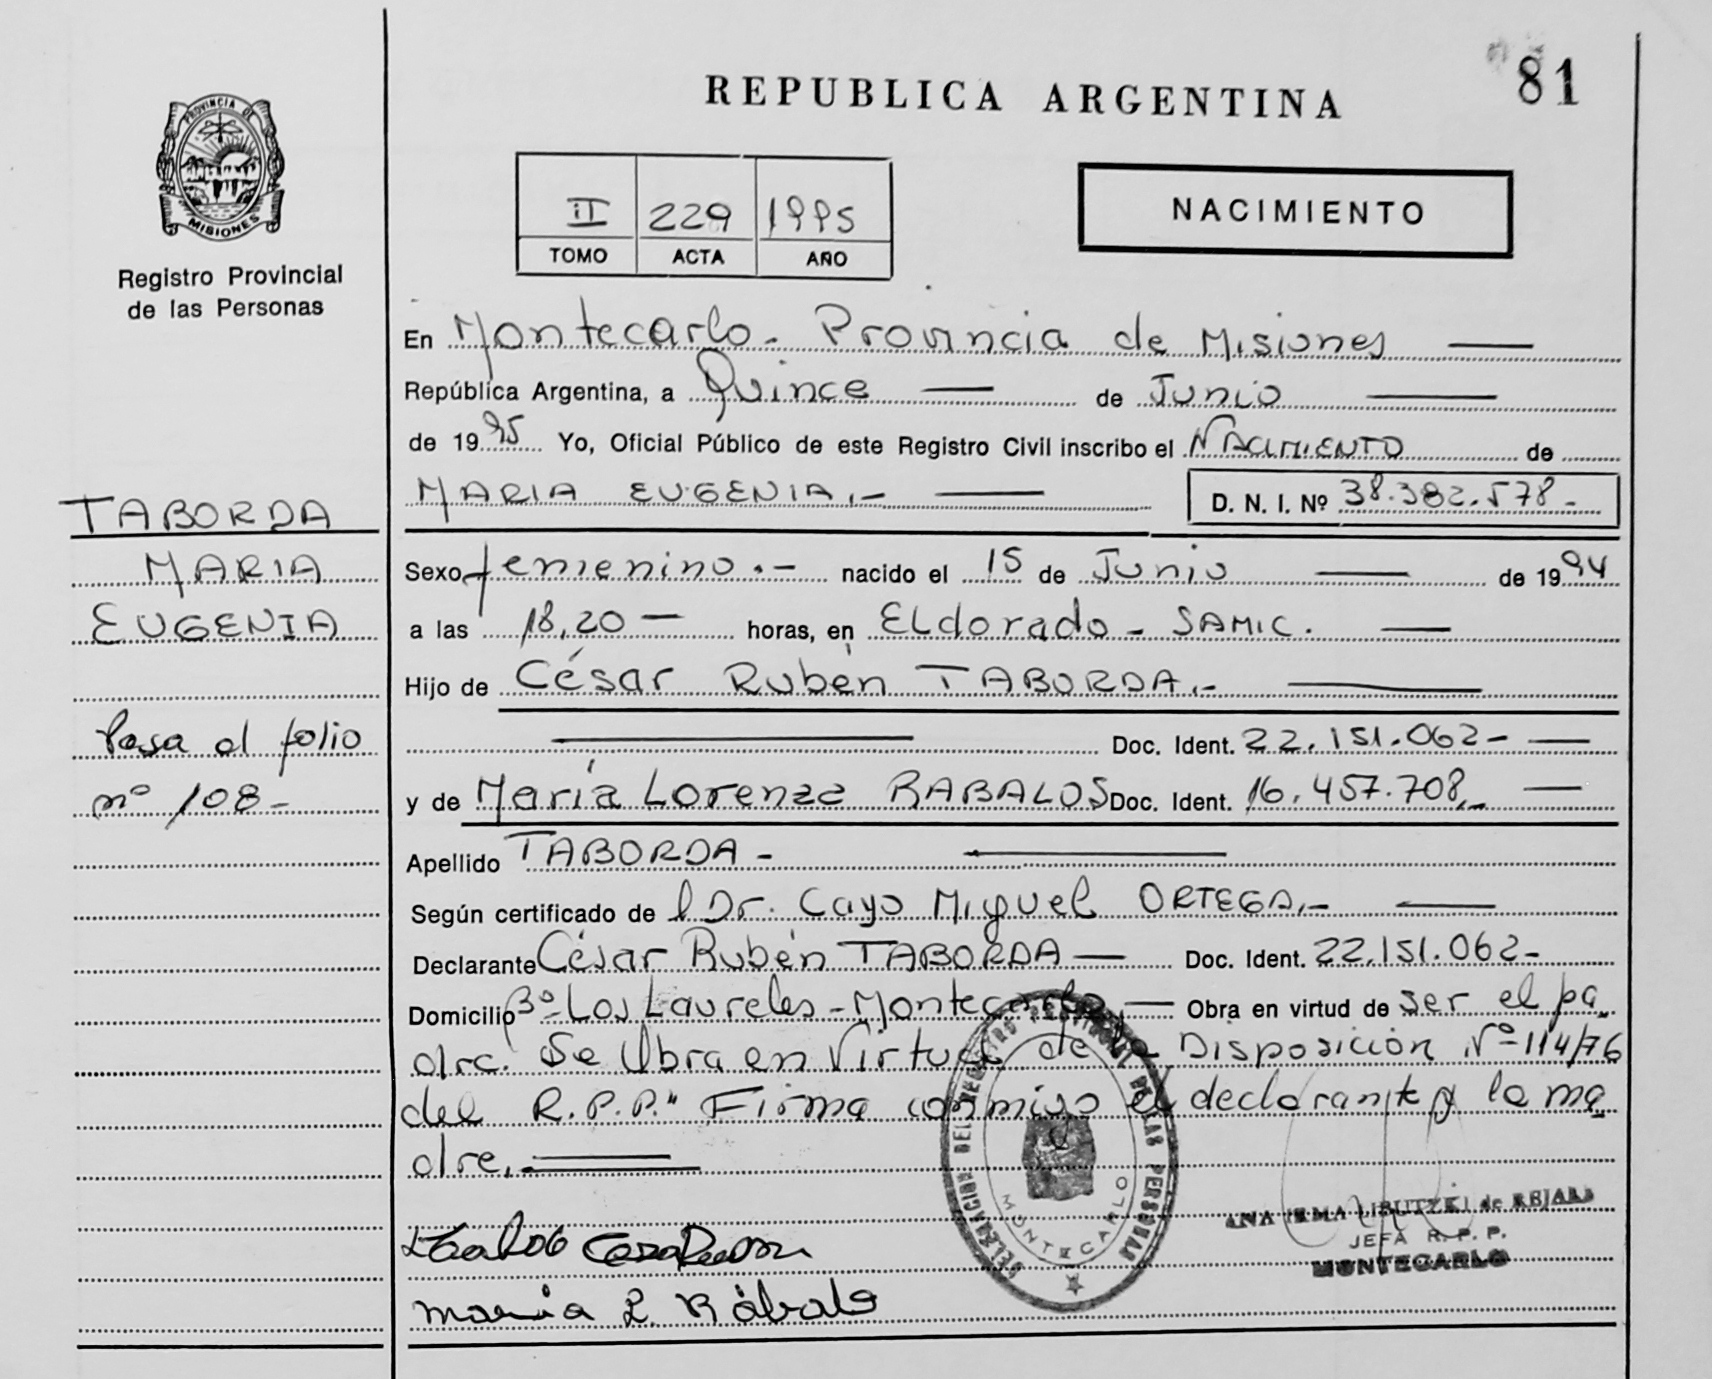 REPUBLICA ARGENTINA
81
PROVINCIA DE
MISIONES
Registro Provincial
de las Personas
II 229 1995
TOMO ACTA AÑO
NACIMIENTO
En Montecarlo - Provincia de Misiones
República Argentina, a Quince de Junio
de 1995 Yo, Oficial Público de este Registro Civil inscribo el NACIMIENTO de
MARIA EUGENIA.- D. N. I. Nº 38.382.578-
TABORDA
MARIA
EUGENIA
Pasa al folio
nº 108-
Sexo femenino.- nacido el 15 de Junio de 1994
a las 18,20 horas, en ELdorado - SAMIC.
Hijo de César Rubén TABORDA.-
Doc. Ident. 22.151.062-
y de María Lorenza RABALOS Doc. Ident. 16.457.708.-
Apellido TABORDA -
Según certificado de l Dr. Cayo Miguel ORTEGA.-
Declarante César Rubén TABORDA Doc. Ident. 22.151.062-
Domicilio Bº Los Laureles - Montecarlo Obra en virtud de ser el pa
dre. Se Obra en Virtud de la Disposición Nº 114/76
del R.P.P." Firma conmigo el declarante y la ma
dre.
DELEGACION DEL REGISTRO PROVINCIAL DE LAS PERSONAS
MONTECARLO
ANA IRMA de
JEFA R. P. P.
MONTECARLO
maria L Rábalo